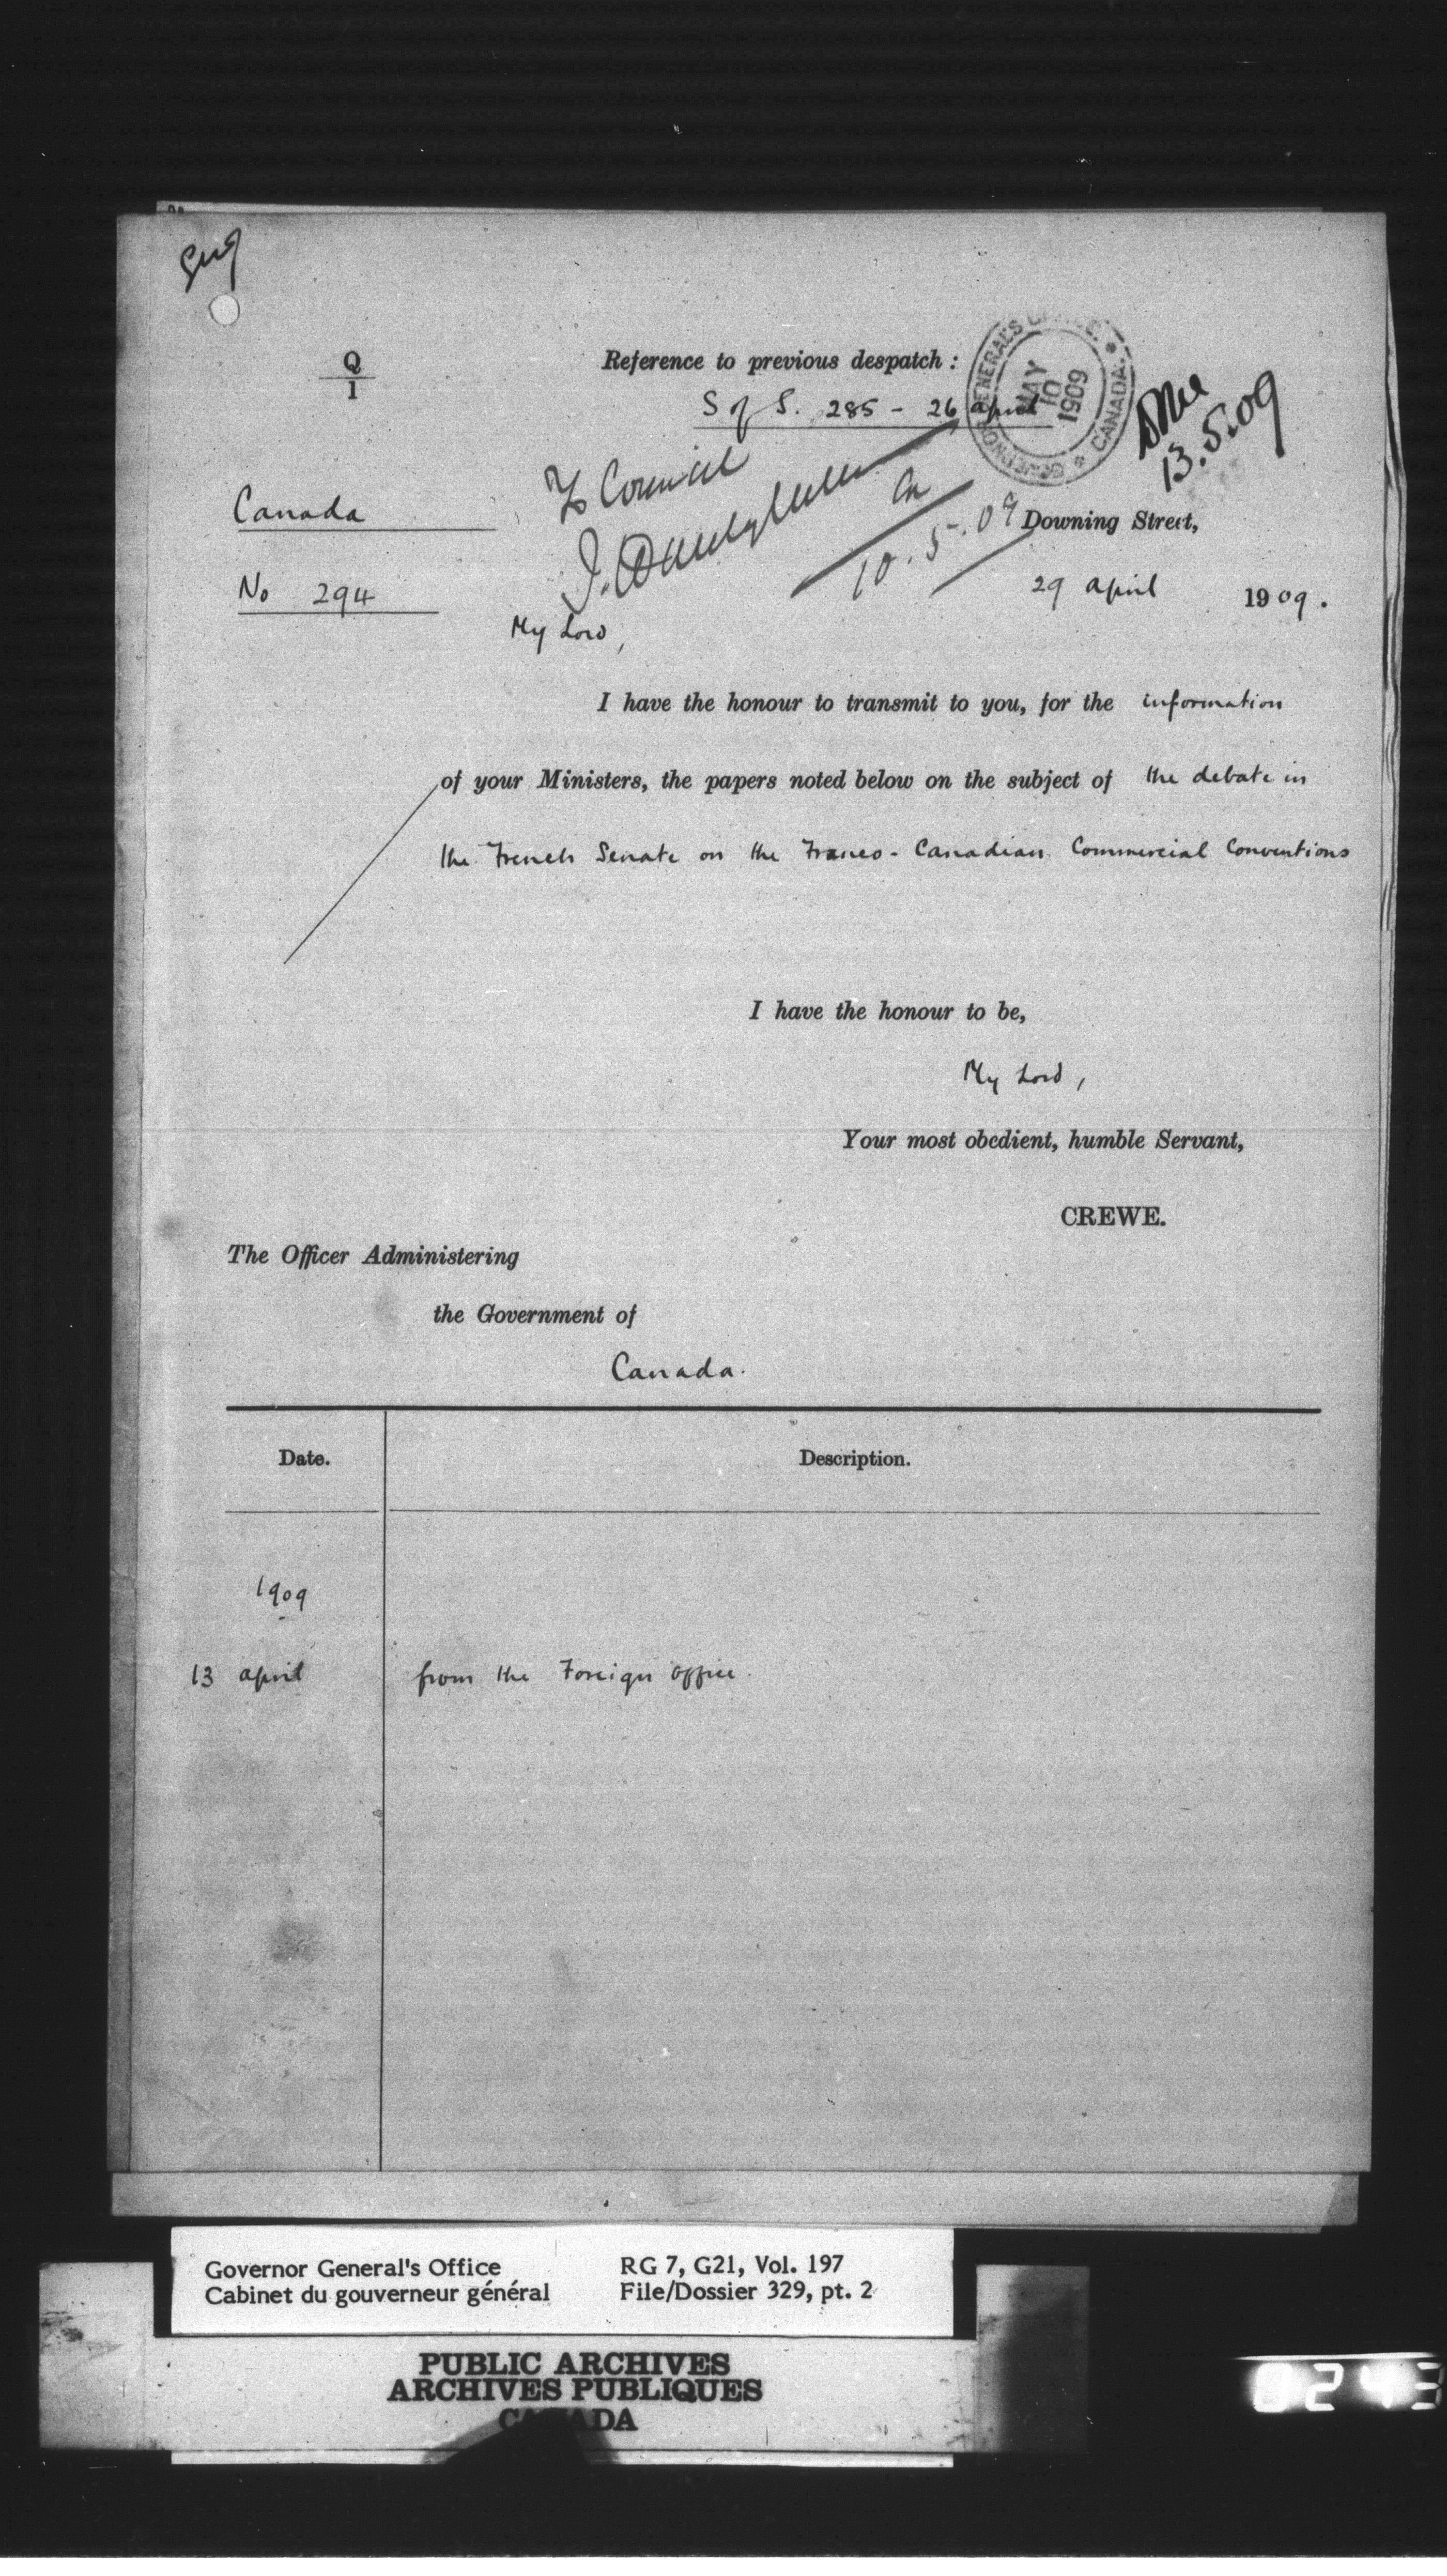 Q
1
Reference to previous despatch :
S of S. 285 - 26 april
GOVERNOR GENERAL'S OFFICE. * CANADA. *
MAY
10
1909
13.5.09
To Council
10.5.09
Canada
No 294
Downing Street,
29 april 1909.
My Lord,
I have the honour to transmit to you, for the information
of your Ministers, the papers noted below on the subject of the debate in
the French Senate on the Franco-Canadian Commercial Conventions
I have the honour to be,
My Lord,
Your most obedient, humble Servant,
CREWE.
The Officer Administering
the Government of
Canada.
Date. Description.
1909
13 april from the Foreign office.
Governor General's Office RG 7, G21, Vol. 197
Cabinet du gouverneur général File/Dossier 329, pt. 2
PUBLIC ARCHIVES
ARCHIVES PUBLIQUES
CANADA
0243